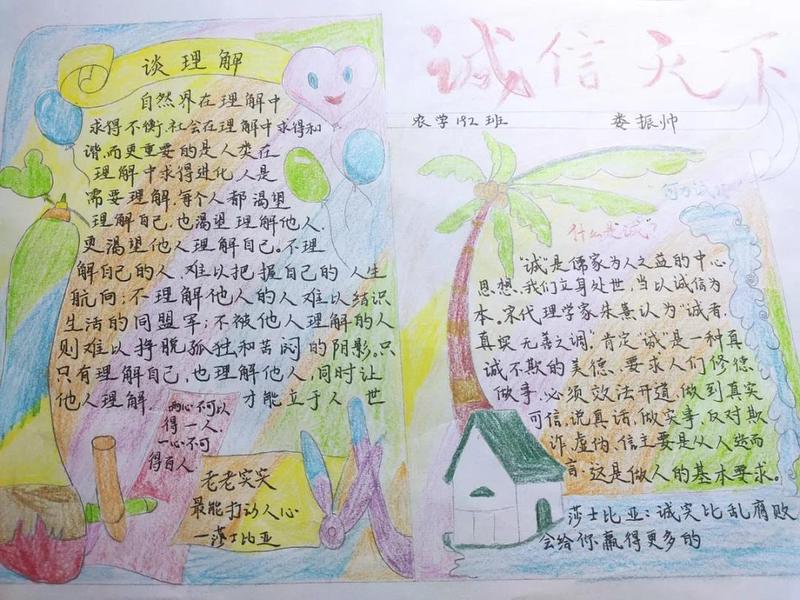 谈理解
自然界在理解中
求得不衡.社会在理解中求得和
谐.而更重要的是人类在
理解中求得进化.人是
需要理解.每个人都渴望
理解自己.也渴望理解他人.
更渴望他人理解自己.不理
解自己的人.难以把握自己的人生
航向;不理解他人的人难以结识
生活的同盟军;不被他人理解的人
则难以挣脱孤独和苦闷的阴影.只
只有理解自己,也理解他人,同时让
他人理解. 才能立于人世
两心不可以
得一人.
一心不可
得百人
老老实实
最能打动人心
—莎士比亚
诚信天下
农学192班 娄振帅
什么是诚?
"诚"是儒家为人之益的中心
思想,我们立身处世,当以诚信为
本.宋代理学家朱熹认为"诚者,
真实无妄之谓."肯定"诚"是一种真
诚不欺的美德.要求人们修德
做事,必须效法开道,做到真实
可信.说真话,做实事,反对欺
诈.虚伪.信主要是从人
言.这是做人的基本要求。
莎士比亚:诚实比乱腐败
会给你赢得更多的